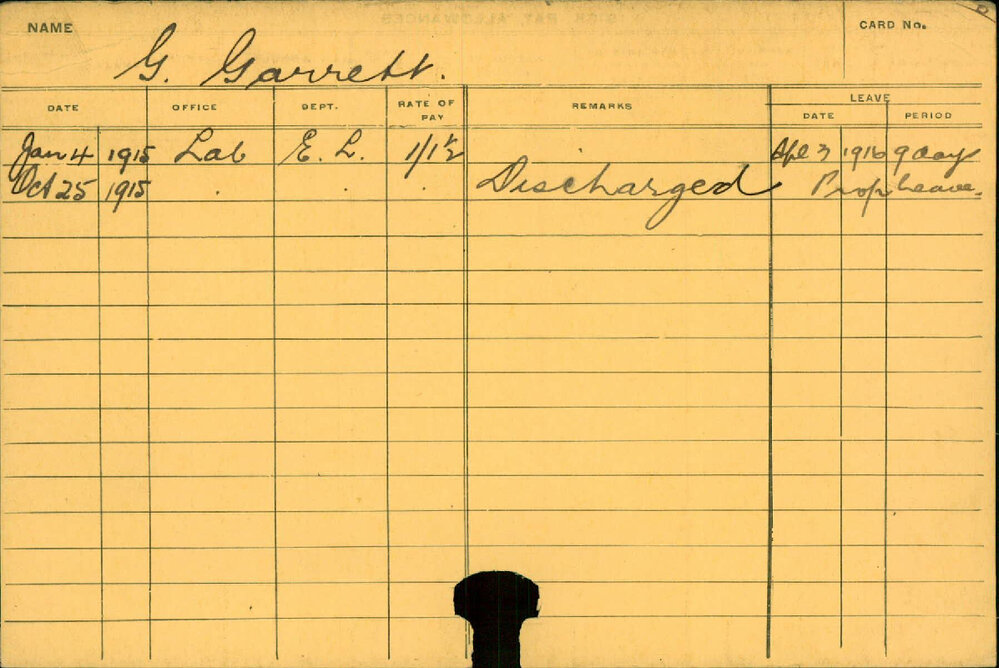 NAME
G. Garrett.
CARD No.
DATE OFFICE DEPT. RATE OF PAY REMARKS LEAVE
DATE PERIOD
Jan 4 1915 Lab E. L. 1/1½ Apl 3 1916 9 days
Oct 25 1915 . . . Discharged Prop Leave.